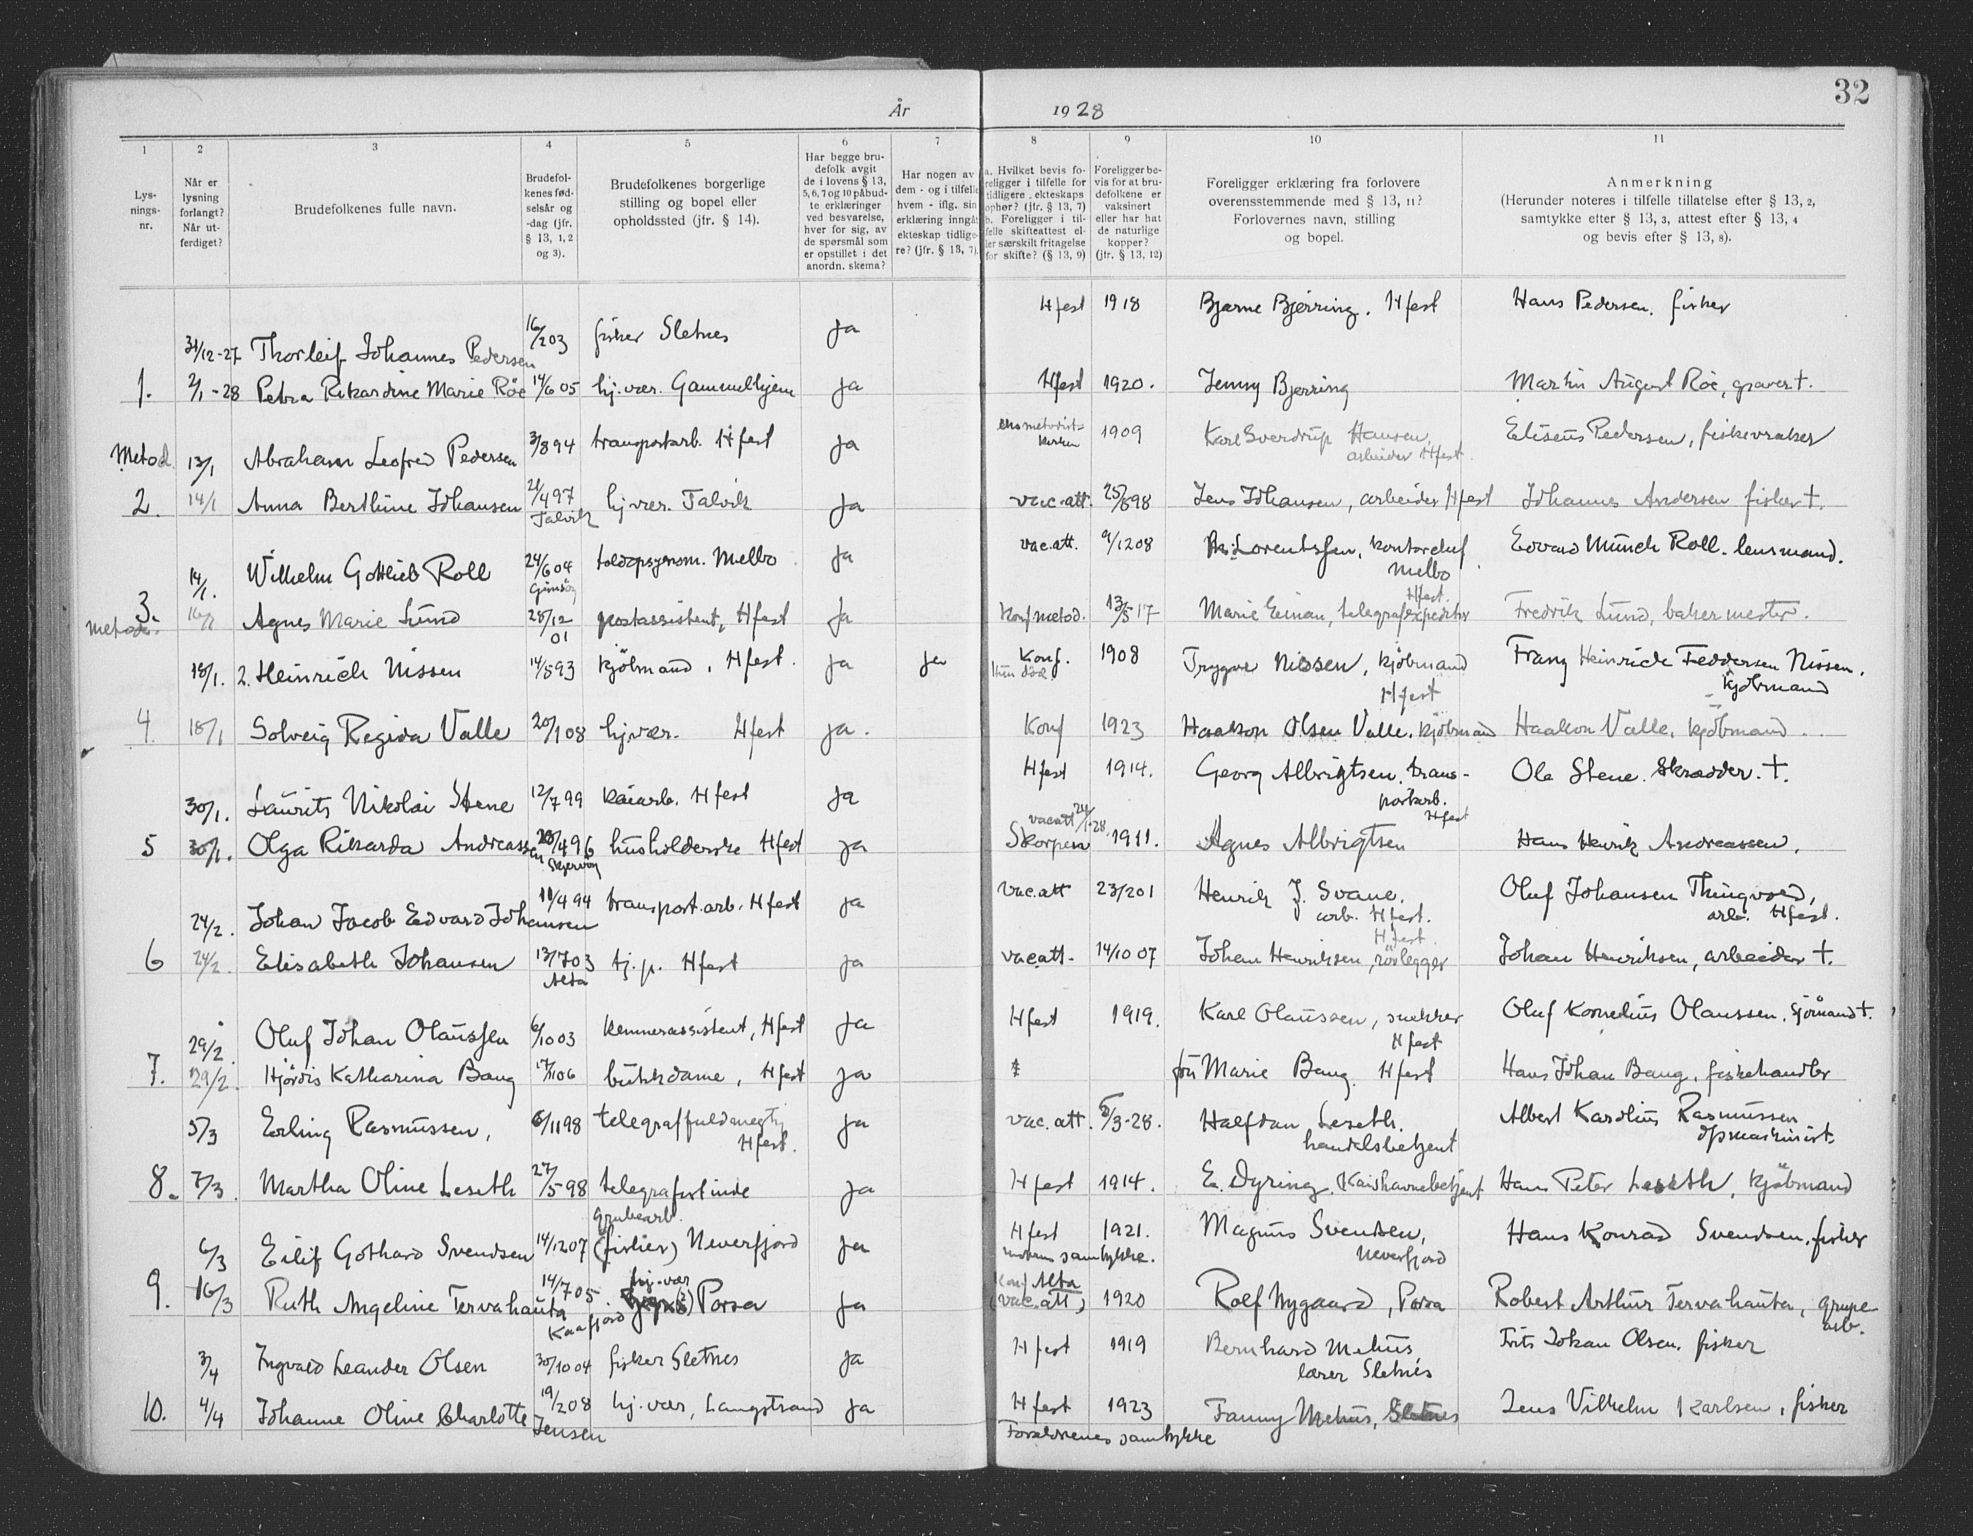 32
År 1928
1 2 3 4 5 6 7 8 9 10 11
Lys-
nings-
nr.
Når er
lysning
forlangt?
Når ut-
ferdiget?
Brudefolkenes fulle navn.
Brudefol-
kenes fød-
selsår og
-dag (jfr.
§ 13, 1, 2
og 3).
Brudefolkenes borgerlige
stilling og bopel eller
opholdssted (jfr. § 14).
Har begge bru-
defolk avgit
de i lovens § 13,
5, 6, 7 og 10 påbud-
te erklæringer
ved besvarelse,
hver for sig, av
de spørsmål som
er opstillet i det
anordn. skema?
Har nogen av
dem - og i tilfelle
hvem - iflg. sin
erklæring inngåt
ekteskap tidlige-
re? (jfr. § 13, 7).
a. Hvilket bevis fo-
religger i tilfelle for
tidligere ekteskaps
ophør? (jfr. § 13, 7)
b. Foreligger i til-
felle skifteattest el-
ler særskilt fritagelse
for skifte? (§ 13, 9)
Foreligger be-
vis for at bru-
defolkene er
vaksinert
eller har hat
de naturlige
kopper?
(jfr. § 13, 12)
Foreligger erklæring fra forlovere
overensstemmende med § 13, 11?
Forlovernes navn, stilling
og bopel.
Anmerkning
(Herunder noteres i tilfelle tillatelse efter § 13, 2,
samtykke efter § 13, 3, attest efter § 13, 4
og bevis efter § 13, 8).
31/12-27 Thorleif Johannes Pedersen 16/2 03 fisker Sletnes Ja Hfest 1918 Bjarne Bjerring. Hfest Hans Pedersen. fisker
1. 2/1-28 Petra Rikardine Marie Röe 14/6 05 hj.vær. Gammelhjem Ja Hfest 1920. Jenny Bjerring Martin August Röe, graver †.
Metod. 13/1 Abraham Leofred Pedersen 3/8 94 transportarb. Hfest Ja metodist-
kirken 1909 Karl Sverdrup Hansen,
arbeider Hfest. Eliseus Pedersen, fiskevraker
2. 14/1 Anna Berthine Johansen 21/4 97
Talvik hj.vær. Talvik Ja vac.att. 25/8 98 Jens Johansen, arbeider Hfest Johannes Andersen fisker †.
14/1. Wilhelm Gottlieb Roll 24/6 04
Gimsöy toldopsynsm. Melbo Ja vac.att. 9/12 08 Lorentssen, kontorchef
Melbo Edvard Münch Roll. lensmand.
3.
metod. 16/1 Agnes Marie Lund 28/12
01 postassistent, Hfest Ja Konf metod. 13/5 17 Marie Einan, telegrafexpeditör
Hfest. Fredrik Lund, bakermester.
18/1. 2. Heinrich Nissen 14/5 93 kjöbmand, Hfest. Ja Ja Konf.
Hun död 1908 Trygve Nissen, kjöbmand
Hfest Franz Heinrich Feddersen Nissen,
kjöbmand
4. 18/1 Solveig Regida Valle 20/1 08 hj.vær. Hfest Ja. Konf 1923 Haakon Olsen Valle. kjöbmand Haakon Valle, kjöbmand.
30/1. Laurits Nikolai Stene 12/7 99 kaiarb. Hfest Ja Hfest 1914. Georg Albrigtsen, trans-
portarb.
Hfest Ole Stene. Skrædder. †.
5 30/1. Olga Rikarda Andreassen 4 96
Skjervöy husholderske Hfest Ja vacatt 24/1-28
Skorpen 1911. Agnes Albrigtsen Hans Henrik Andreassen.
24/2. Johan Jacob Edvard Johansen 11/4 94 transport.arb. Hfest Ja vac.att 23/2 01 Henrik J. Svane.
arb. Hfest. Oluf Johansen Thingvold,
arb. Hfest.
6 24/2. Elisabeth Johansen 13/7 03
Alta tj.p. Hfest Ja vac.att. 14/10 07 Johan Henriksen, rörlegger
Hfest. Johan Henriksen, arbeider †.
29/2. Oluf Johan Olaussen 6/10 03 kemnerassistent, Hfest Ja Hfest 1919. Karl Olaussen, snekker
Hfest Oluf Kornelius Olaussen. sjömand †.
7. 29/2. Hjördis Katharina Bang 17/1 06 butikkdame, Hfest Ja fru Marie Bang. Hfest Hans Johan Bang, fiskehandler
5/3 Erling Rasmussen, 6/11 98 telegraffuldmegtig
Hfest. Ja vac. att. 5/3-28. Halfdan Leseth.
handelsbetjent Albert Karolius Rasmussen
dpmaskinist.
8. 7/3. Martha Oline Leseth 27/5 98 telegrafistinde Ja Hfest 1914. E. Dyring. Kaishavnebetjent Hans Peter Leseth, kjöbmand
6/3 Eilif Gothard Svendsen 14/12 07 grubearb.
(fisker) Neverfjord Ja Hfest
morens samtykke. 1921. Magnus Svendsen,
Neverfjord Hans Konrad Svendsen, fisker
9. 16/3 Ruth Angeline Tervahauta 14/7 05
Kaafjord hj.vær
Porsa Ja Konf Alta
(vac.att) 1920 Rolf Nygaard, Porsa Robert Arthur Tervahauta, grube
arb.
3/4 Ingvald Leander Olsen 30/10 04 fisker Sletnes Ja Hfest 1919 Bernhard Mehus
lærer Sletnes Frits Johan Olsen. fisker
10. 4/4 Johanne Oline Charlotte
Jensen 19/2 08 hj.vær, Langstrand Ja Hfest 1923
Forældrenes samtykke Fanny Mehus, Sletnes Jens Vilhelm Karlsen, fisker